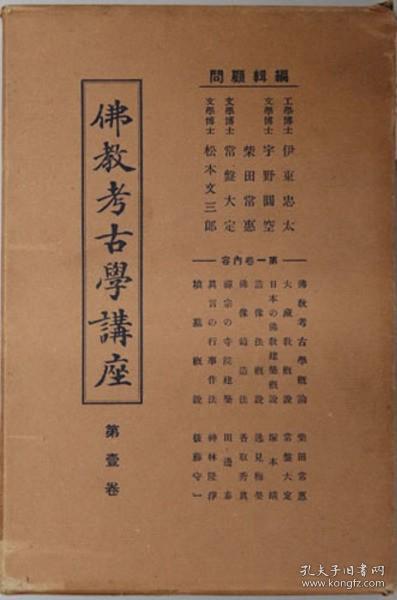 編輯顧問
工學博士 伊東忠太
文學博士 宇野圓空
柴田常惠
文學博士 常盤大定
文學博士 松本文三郎
第一卷內容
佛教考古學概論 柴田常惠
大藏教概說 常盤大定
日本の佛教建築概說 塚本靖
造像法概說 逸見梅榮
佛像鑄造法 香取秀眞
禪宗の寺院建築 田邊泰
眞言の行事作法 神林隆淨
墳墓概說 後藤守一
佛教考古學講座
第壹卷
孔夫子旧书网